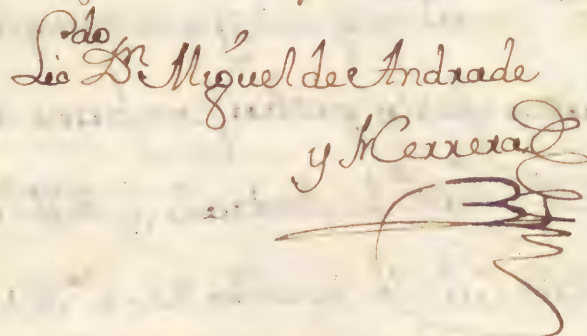 Licdo Dn. Miguel de Andrade
y Herrera